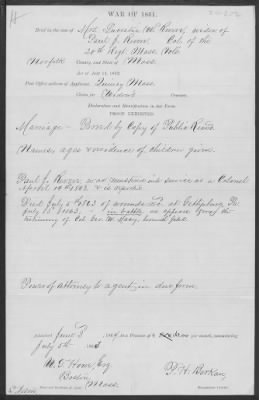 WAR OF 1861.
Brief in the case of Mrs. Lucretia W. Revere, widow of
Paul J. Revere, Col. of the
20th Regt Mass. Vols.
Norfolk County, and State of Mass.
Act of July 14, 1862.
Post Office address of Applicant, Quincy Mass.
Claim for Widow's Pension.
Declaration and Identification in due Form.
PROOF EXHIBITED.
Marriage - Proved by Copy of Public Record
Names, ages & evidence of children given.
Paul J. Revere was mustered into service as a Colonel
April 14th 1863 &
Died July 4th 1863 of wounds at Gettysburg Pa
July 2d 1863, - in battle as appears from the
testimony of Col. Geo. N. Macy,
Power of attorney to agent in due form.
Admitted June 3, 186 to a Pension of $ per month, commencing
July 5th 1863
Esq.
Boston,
Mass.